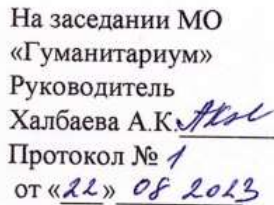 На заседании МО
«Гуманитариум»
Руководитель
Халбаева А.К.
Протокол № 1
от «22» 08 2023